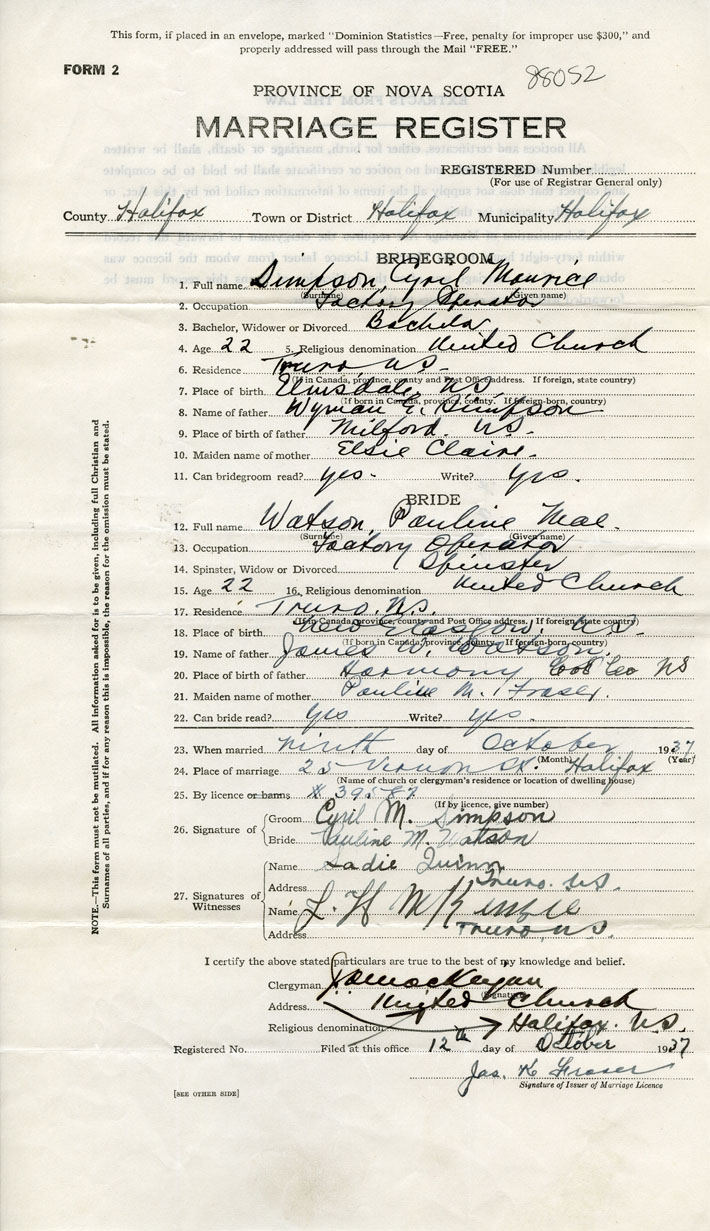 This form, if placed in an envelope, marked "Dominion Statistics—Free, penalty for improper use $300," and
properly addressed will pass through the Mail "FREE."
FORM 2
88052
PROVINCE OF NOVA SCOTIA
MARRIAGE REGISTER
REGISTERED Number
(For use of Registrar General only)
County Halifax Town or District Halifax Municipality Halifax
BRIDEGROOM
1. Full name Simpson, Cyril Maurice
(Surname) (Given name)
2. Occupation Factory Operator
3. Bachelor, Widower or Divorced Bachelor
4. Age 22 5. Religious denomination United Church
6. Residence Truro N.S.
(If in Canada, province, county and Post Office address. If foreign, state country)
7. Place of birth Elmsdale, N.S.
(If born in Canada, province, county. If foreign-born, country)
8. Name of father Wyman E. Simpson
9. Place of birth of father Milford. N.S.
10. Maiden name of mother Elsie Claire.
11. Can bridegroom read? yes. Write? yes.
BRIDE
12. Full name Watson, Pauline Mae.
(Surname) (Given name)
13. Occupation Factory Operator
14. Spinster, Widow or Divorced Spinster
15. Age 22 16. Religious denomination United Church
17. Residence Truro. N.S.
(If in Canada, province, county and Post Office address. If foreign, state country)
18. Place of birth New Glasgow, N.S.
(If born in Canada, province, county. If foreign-born, country)
19. Name of father James W. Watson.
20. Place of birth of father Harmony Col Co NS
21. Maiden name of mother Pauline M. Fraser.
22. Can bride read? yes Write? yes.
23. When married ninth day of October 1937
(Month) (Year)
24. Place of marriage 25 Vernon St. Halifax
(Name of church or clergyman's residence or location of dwelling house)
25. By licence or banns # 39587
(If by licence, give number)
26. Signature of
Groom Cyril M. Simpson
Bride Pauline M. Watson
27. Signatures of Witnesses
Name Sadie Quinn
Address Truro. N.S.
Name L. H McKenzie
Address Truro N.S.
I certify the above stated particulars are true to the best of my knowledge and belief.
Clergyman
(Signature)
Address United Church
Religious denomination Halifax. N.S.
Registered No. Filed at this office 12th day of October 1937
Jas. K Fraser
Signature of Issuer of Marriage Licence
[SEE OTHER SIDE]
NOTE.—This form must not be mutilated. All information asked for is to be given, including full Christian and
Surnames of all parties, and if for any reason this is impossible, the reason for the omission must be stated.